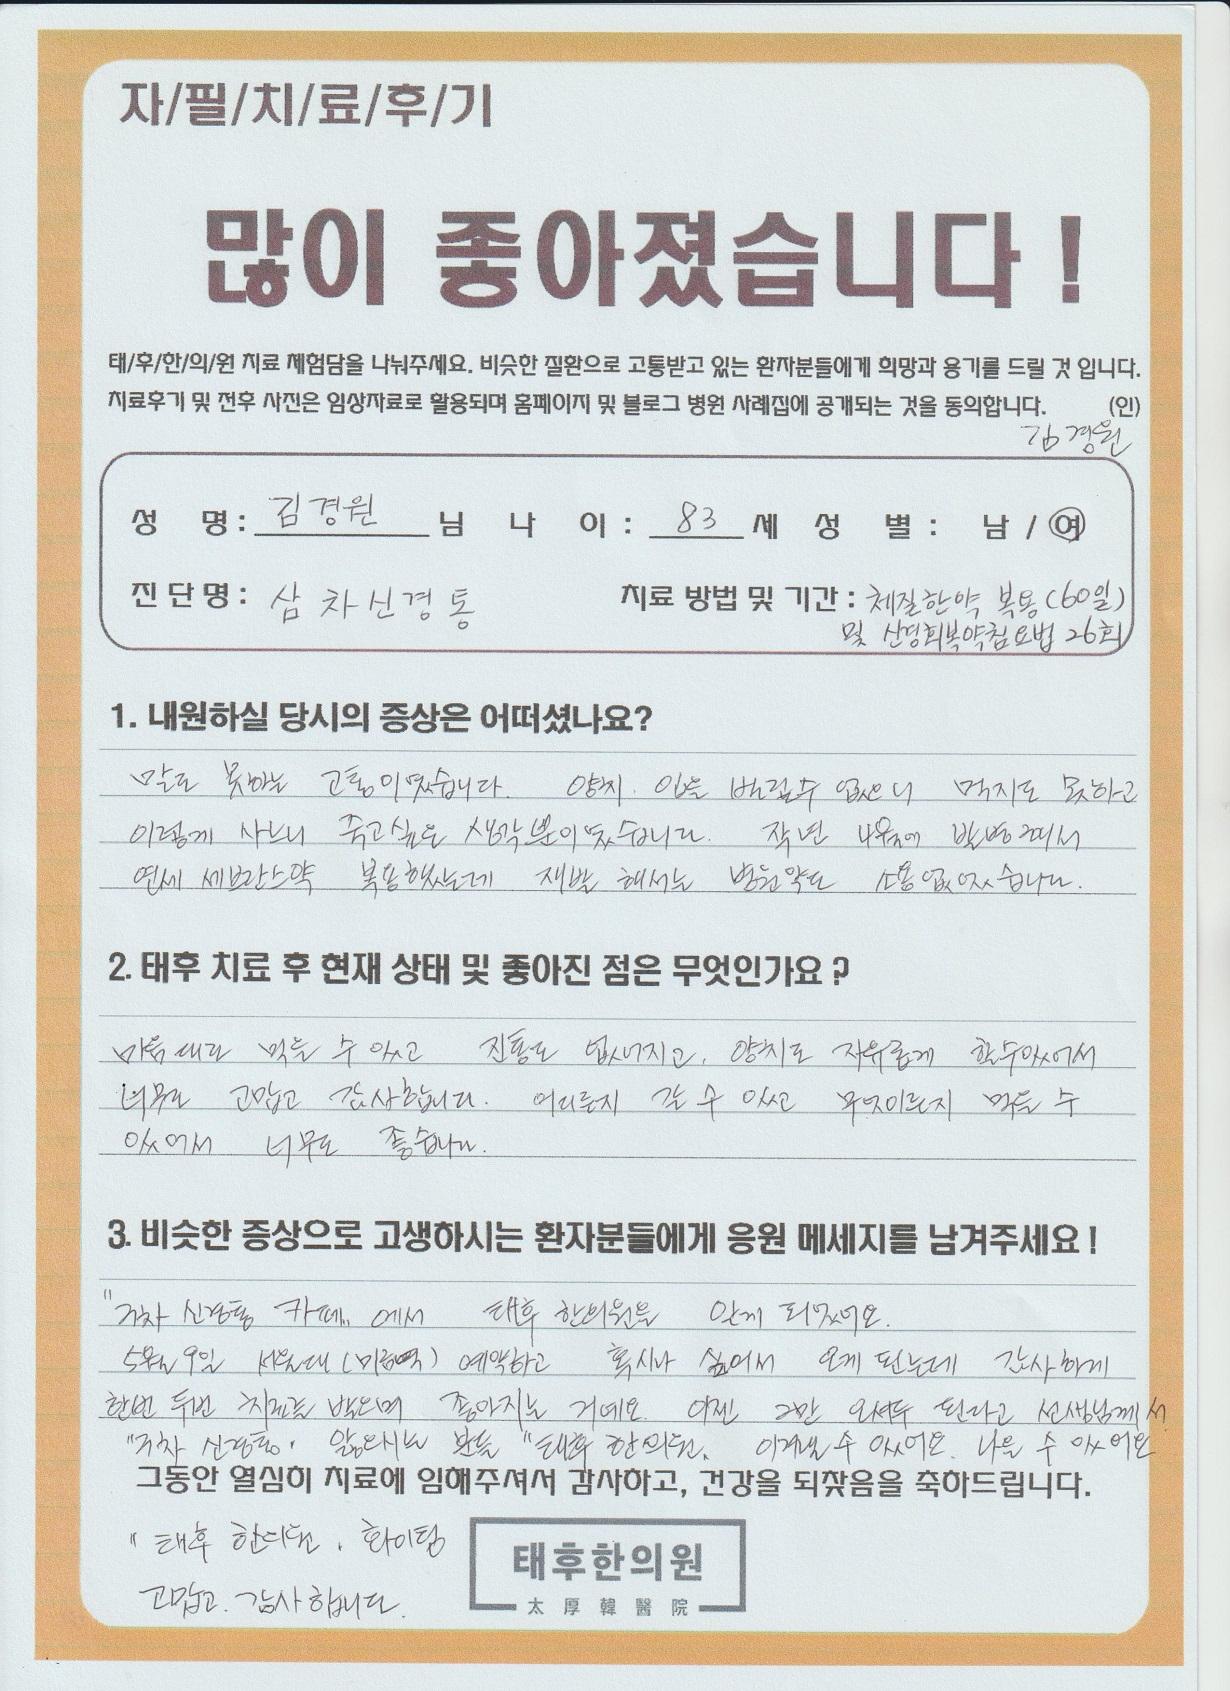 자/필/치/료/후/기
많이 좋아졌습니다!
태/후/한/의/원 치료 체험담을 나눠주세요. 비슷한 질환으로 고통받고 있는 환자분들에게 희망과 용기를 드릴 것 입니다.
치료후기 및 전후 사진은 임상자료로 활용되며 홈페이지 및 블로그 병원 사례집에 공개되는 것을 동의합니다. (인)
김경원
성 명: 김경원 님 나 이: 83 세 성 별: 남 / 여
진단명: 삼차신경통 치료 방법 및 기간: 체질한약 복용(60일)
및 신경회복약침요법 26회
1. 내원하실 당시의 증상은 어떠셨나요?
말로 못하는 고통이였습니다. 양치. 입을 벌릴수 없으니 먹지도 못하고
이렇게 사느니 죽고싶은 생각뿐이였습니다. 작년 에 발병해서
연세 세브란스약 복용했는데 재발 해서는 병원약도 소용없었습니다.
2. 태후 치료 후 현재 상태 및 좋아진 점은 무엇인가요?
마음대로 먹을 수 있고 진통도 없어지고, 양치도 자유롭게 할수있어서
너무도 고맙고 감사합니다. 어디든지 갈 수 있고 무엇이든지 먹을 수
있어서 너무도 좋습니다.
3. 비슷한 증상으로 고생하시는 환자분들에게 응원 메세지를 남겨주세요!
"차 신경통 카페" 에서 태후 한의원을 알게 되였어요.
5월 9일 예약하고 혹시나 싶어서 오게 된는데 감사하게
한번 두번 치료를 받으며 좋아지는 거예요. 이젠 2만 오셔두 된다고 선생님께서
"차 신경통" 앓으시는 분들 "태후 한의원" 이겨낼 수 있어요. 나을 수 있어요
그동안 열심히 치료에 임해주셔서 감사하고, 건강을 되찾음을 축하드립니다.
"태후 한의원" 화이팅
고맙고. 감사합니다.
태후한의원
太厚韓醫院